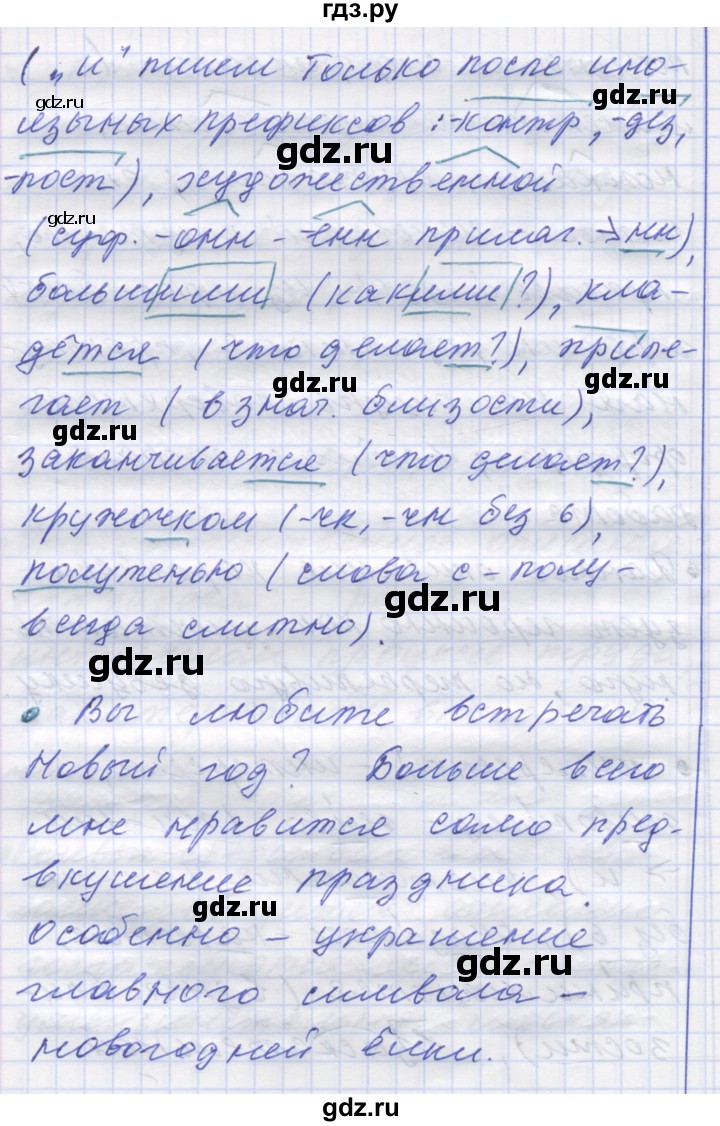 гдз.ру
(„и" пишем только после ино-
язычных префиксов: -контр, -дез,
-пост), художественной
(суф. -онн - -енн прилаг. → нн),
большими (какими?), кла-
дётся (что делает?), приле-
гает (в знач. близости),
заканчивается (что делает?),
кружочком (-чк, -чн без ь),
полутенью (слова с -полу-
всегда слитно).
• Вы любите встречать
Новый год? Больше всего
мне нравится само пред-
вкушение праздника.
Особенно – украшение
главного символа –
новогодней ёлки.
gdz.ru
gdz.ru
gdz.ru
gdz.ru
gdz.ru
gdz.ru
gdz.ru
gdz.ru
gdz.ru
gdz.ru
gdz.ru
gdz.ru